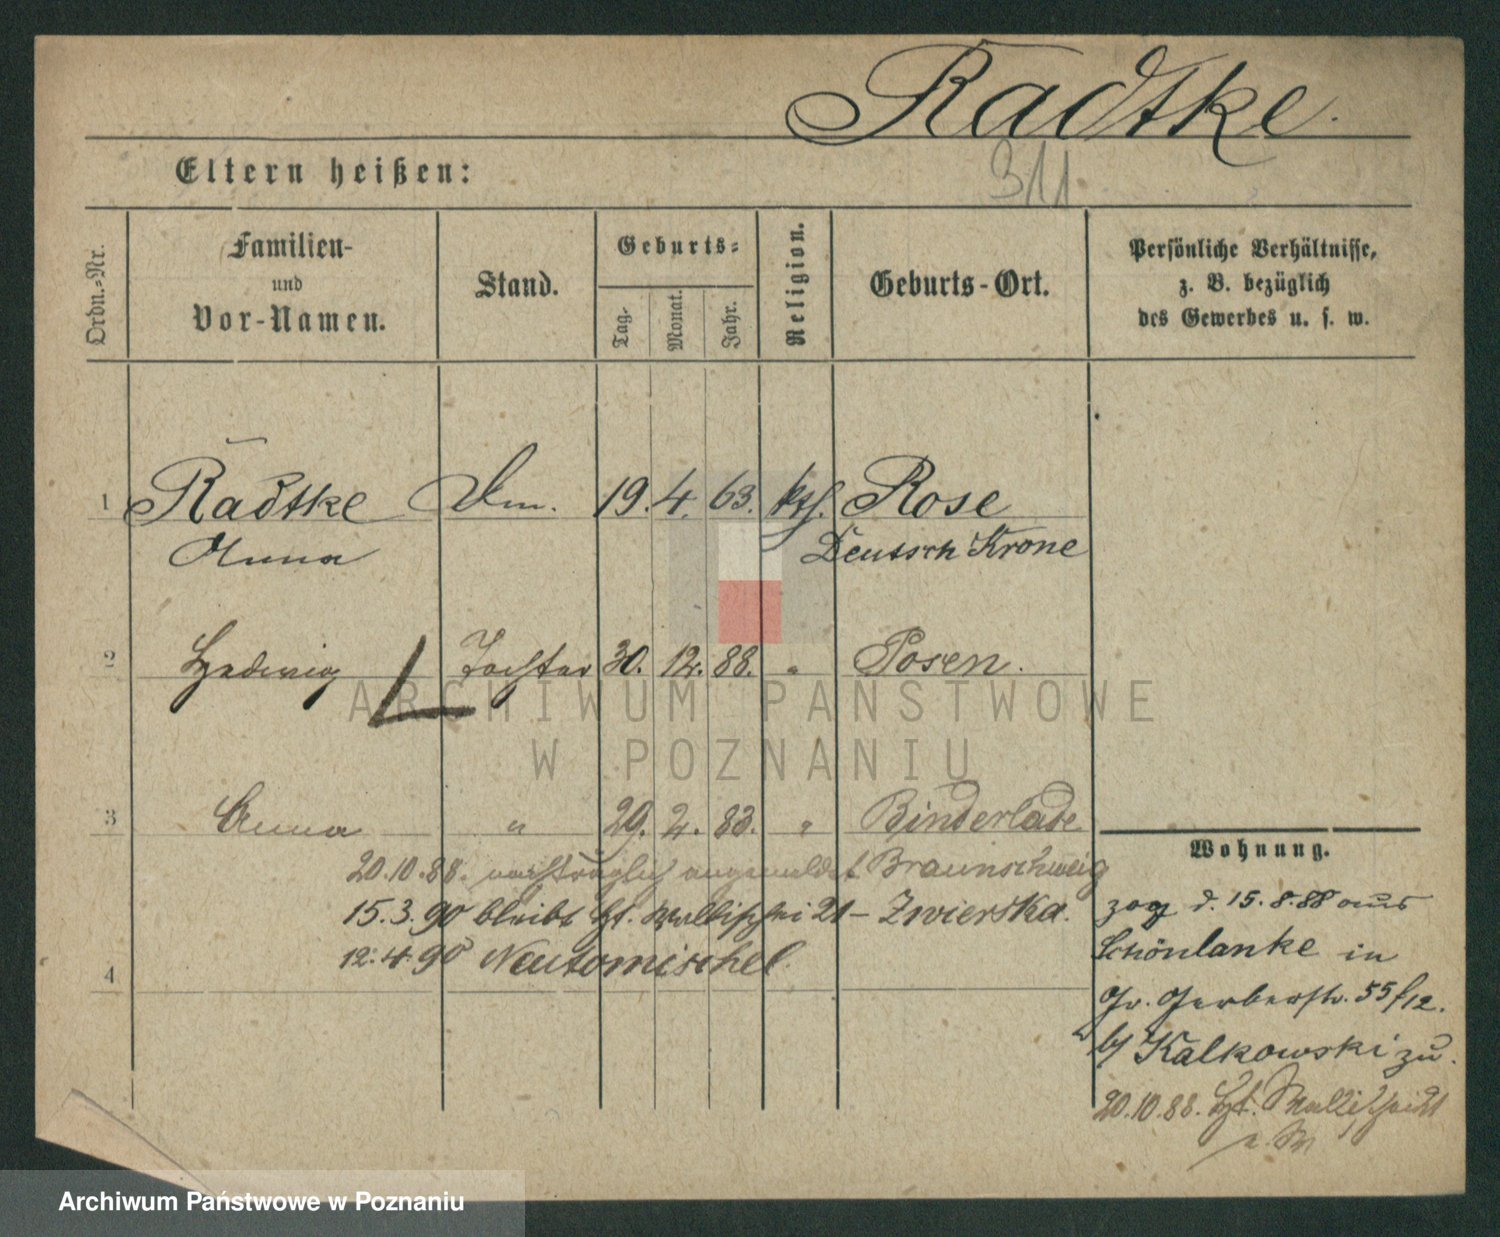 Radtke.
311
Eltern heißen:
Ordn.-Nr.
Familien-
und
Vor-Namen.
Stand.
Geburts-
Tag.
Monat.
Jahr.
Religion.
Geburts-Ort.
Persönliche Verhältnisse,
z. B. bezüglich
des Gewerbes u. s. w.
1 Radtke 19. 4. 63. kth. Rose
Anna Deutsch Krone
2 Hedwig Tochter 30. 12. 88. " Posen.
ARCHIWUM PAŃSTWOWE
W POZNANIU
3 Anna " 29. 2. 83. " Binderlade
Wohnung.
20.10.88. nachträglich angemeldet Braunschweig
15.3.90 bleibt 21 - Zwierska.
4 12.4.90 Neutomischel
zog d. 15.8.88 aus
Schönlanke in
Gr. Gerberstr. 55/12.
b/ Kalkowski zu.
20.10.88.
Archiwum Państwowe w Poznaniu